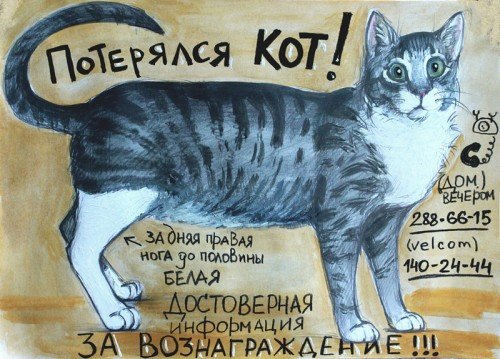 Потерялся кот!
(дом)
вечером
288-66-15
(velcom)
140-24-44
задняя правая
нога до половины
белая
Достоверная
информация
за вознаграждение!!!